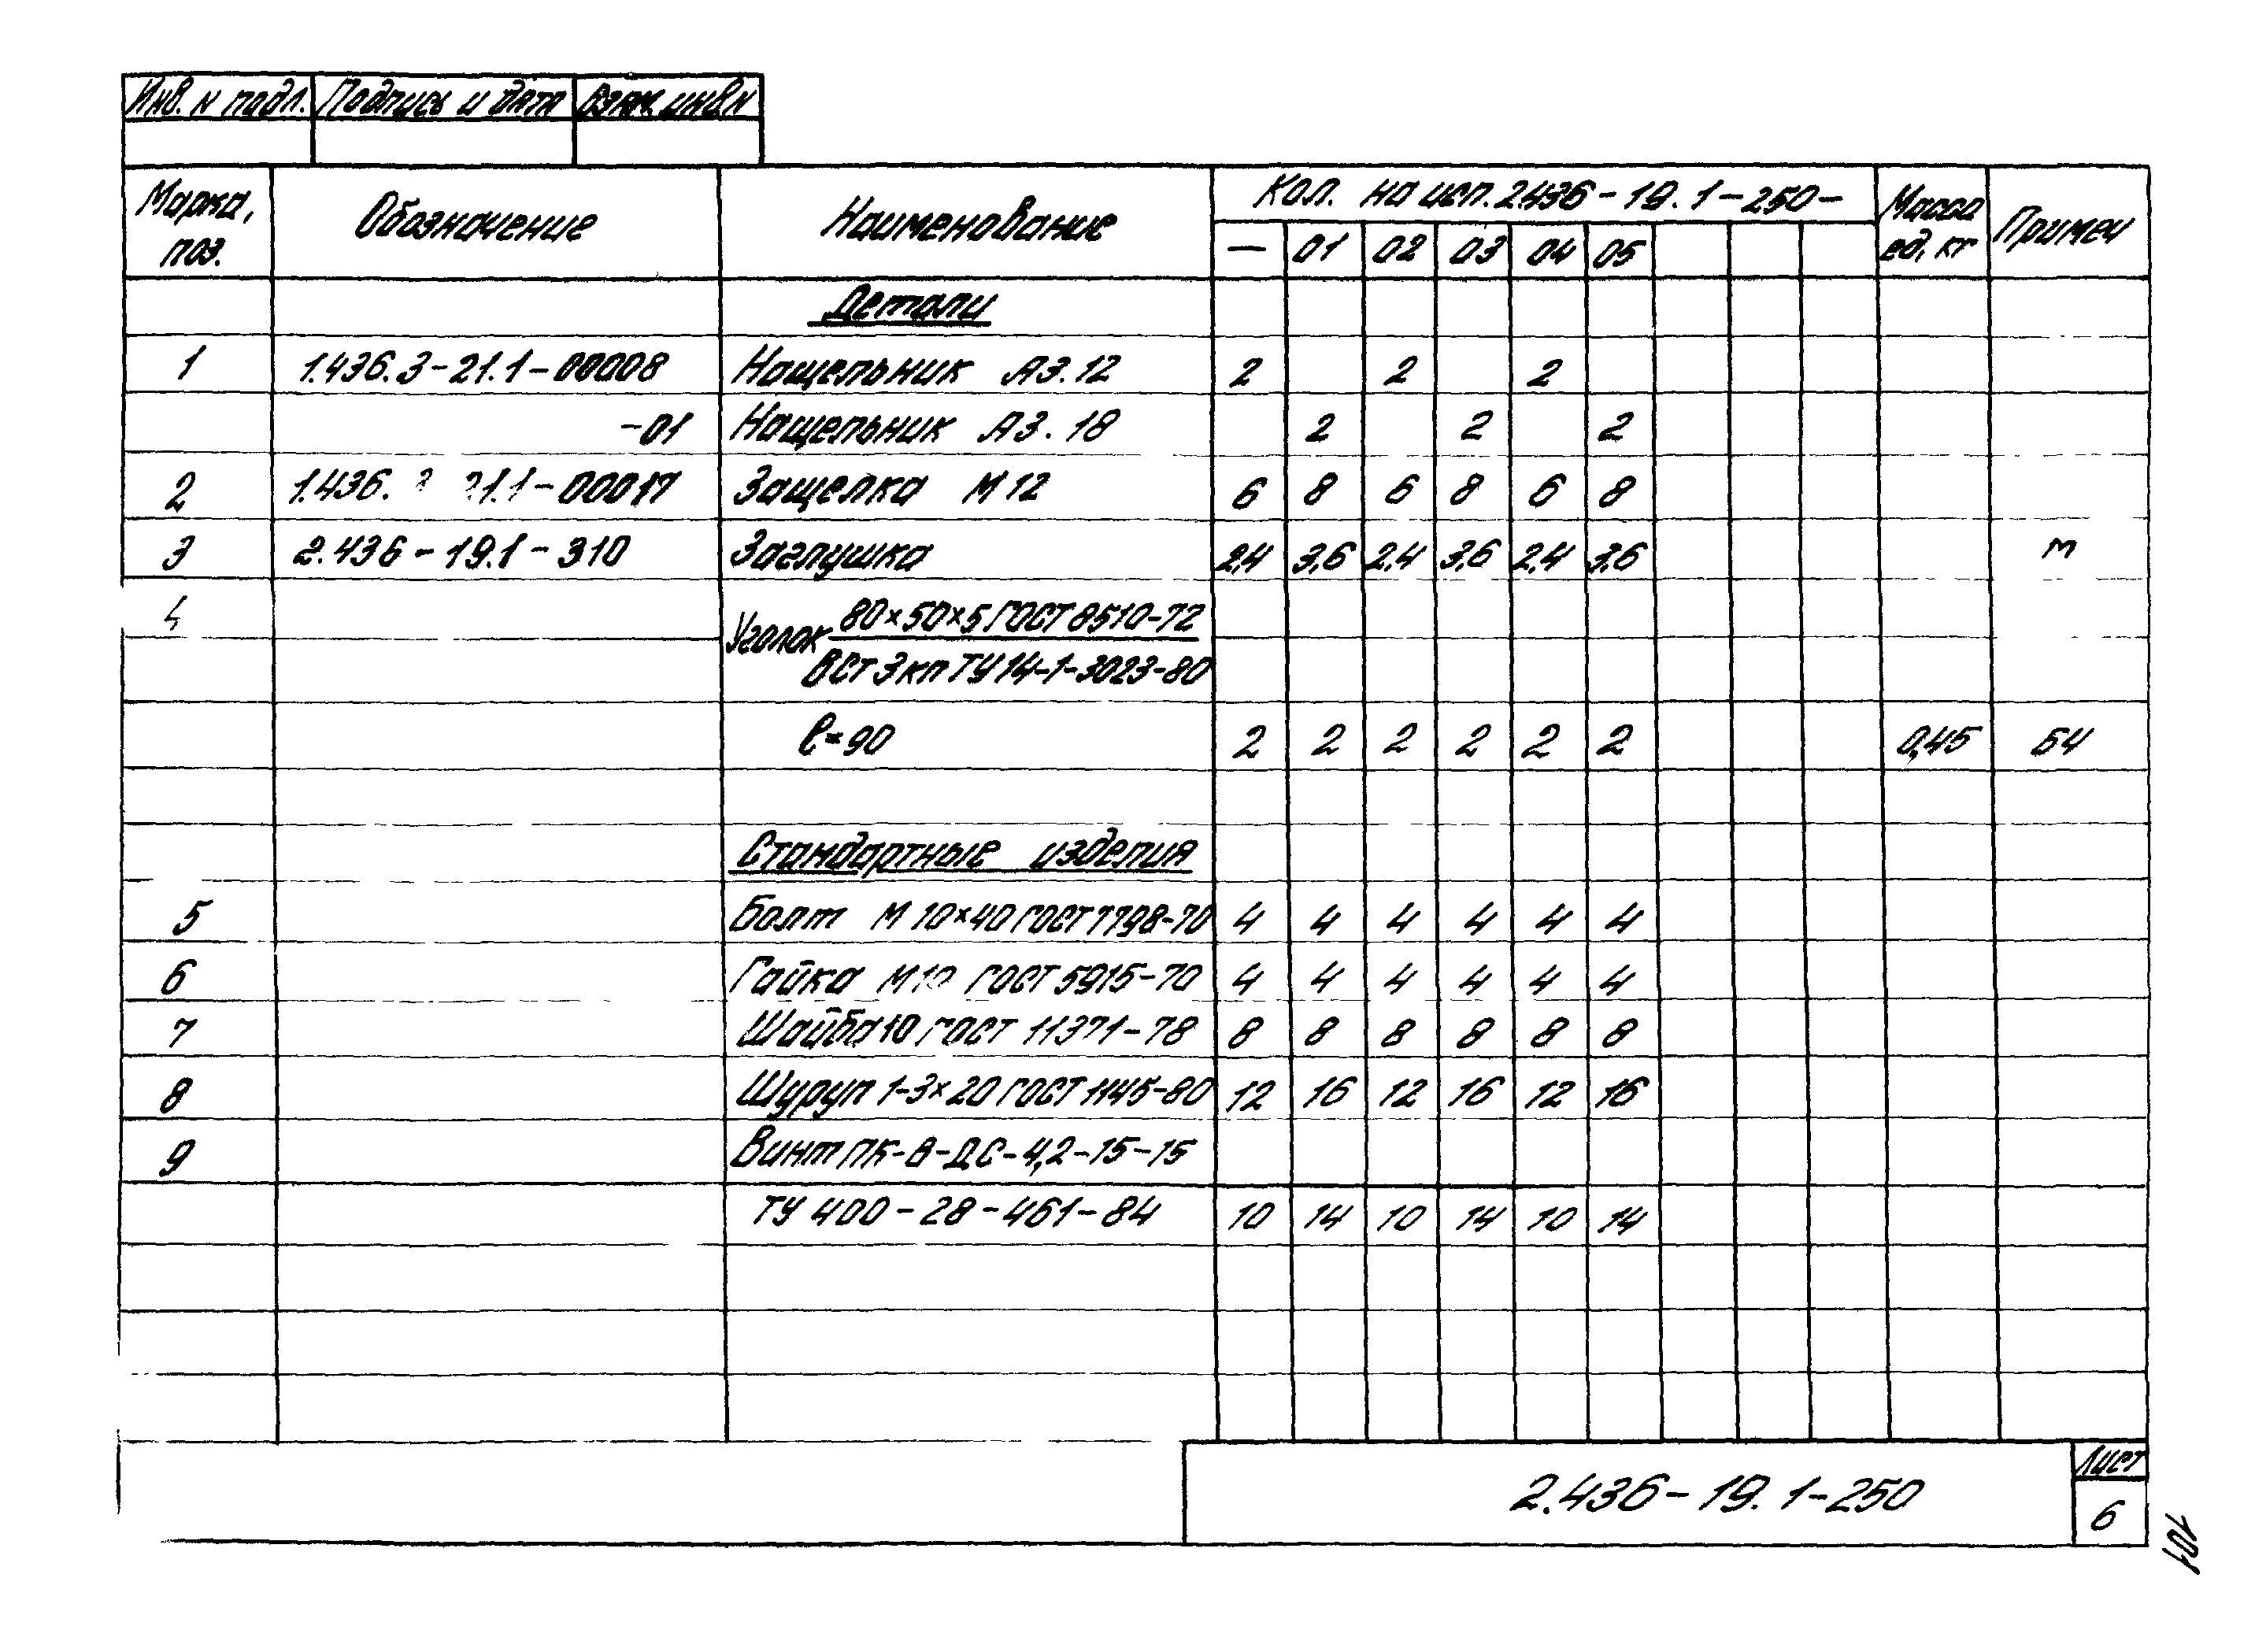 Инв. N подл. Подпись и дата Взам. инв. N
Марка, поз. Обозначение Наименование Кол. на исп. 2.436-19.1-250- Масса ед, кг Примеч
— 01 02 03 04 05
Детали
1 1.436.3-21.1-00008 Нащельник АЗ.12 2 2 2
-01 Нащельник АЗ.18 2 2 2
2 1.436. 21.1-00017 Защелка М12 6 8 6 8 6 8
3 2.436-19.1-310 Заглушка 2,4 3,6 2,4 3,6 2,4 3,6 м
4 Уголок 80×50×5 ГОСТ 8510-72
ВСт3кп ТУ14-1-3023-80
ℓ=90 2 2 2 2 2 2 0,45 БЧ
Стандартные изделия
5 Болт М10×40 ГОСТ 7798-70 4 4 4 4 4 4
6 Гайка М10 ГОСТ 5915-70 4 4 4 4 4 4
7 Шайба 10 ГОСТ 11371-78 8 8 8 8 8 8
8 Шуруп 1-3×20 ГОСТ 1145-80 12 16 12 16 12 16
9 Винт ПК-В-ДС-4,2-15-15
ТУ 400-28-461-84 10 14 10 14 10 14
2.436-19.1-250
Лист
6
101